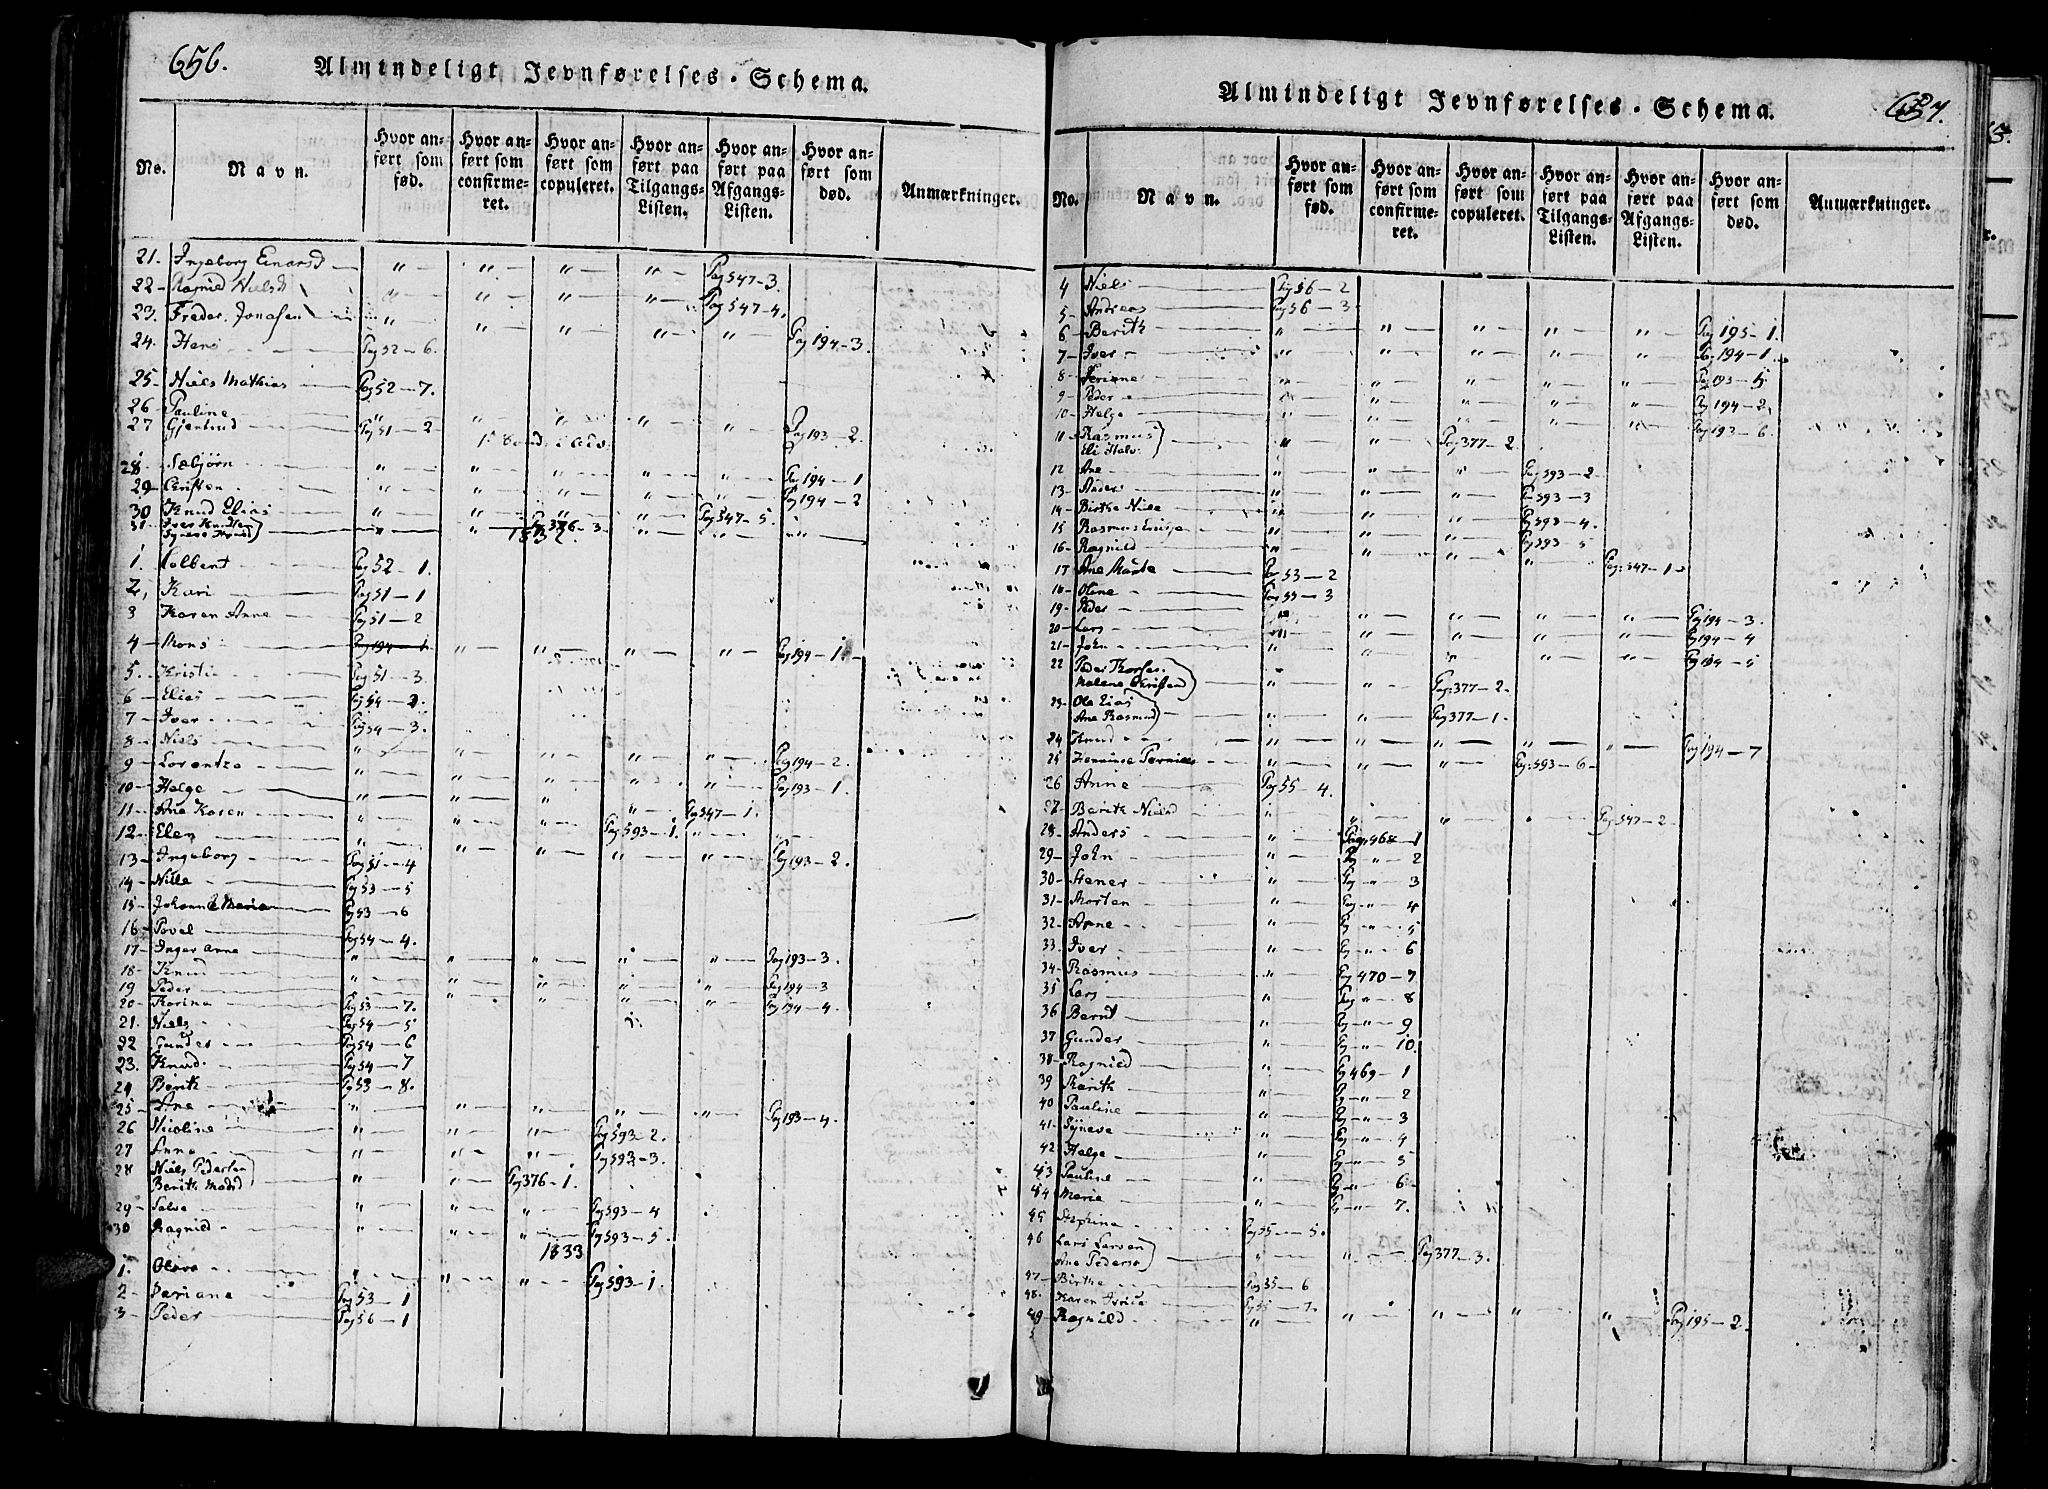 656.
Almindeligt Jevnførelses-Schema.
No. Navn. Hvor anført som fød. Hvor anført som confirmeret. Hvor anført som copuleret. Hvor anført paa Tilgangs-Listen. Hvor anført paa Afgangs-Listen. Hvor anført som død. Anmærkninger.
21. Ingeborg Einarsd — " — " — " — " — Pag 547-3.
22 - Ragnild Nielsd " — " — " — " — Pag 547-4.
23. Freder. Jonasen " " — " — " — " — Pag 194-3.
24. Hans Pag 52-6.
25- Niels Mathias Pag 52-7.
26 Pauline " — " — " — " — " — Pag 193-2.
27 Gjertrud Pag 51-2
28- Sebjørn " — " — " — " — " — Pag 194-1
29- Christen " — " — " — " — " — Pag 194-2
30 Knud Elias " — " — " — " — Pag 547-5.
31- Iver Knudsen " — " — Pag 376-3. " — " — "
Synneve
1832.
1. Colbent Pag 52-1.
2, Kari Pag 51-1
3 Karen Anne Pag 51-2
4- Mons Pag 194-1 " — " — " — " — Pag 194-1.
5. Kristi Pag 51-3
6- Elias Pag 54-2.
7- Iver Pag 54-3.
8- Niels " — " — " — " — " — Pag 194-2.
9- Lorentze " — " — " — " — " — Pag 193-1.
10- Helge " — " — " — " — Pag 547-1.
11- Ane Karen " — " — " — Pag 593-1. " — "
12- Elen " — " — " — " — " — Pag 193-2.
13- Ingeborg Pag 51-4
14- Nille Pag 53-5
15- Johanne Marie Pag 53-6
16- Povel Pag 54-4.
17- Inger Anne " — " — " — " — " — Pag 193-3.
18- Knud " — " — " — " — " — Pag 194-3
19 Peder " — " — " — " — " — Pag 194-4.
20- Karina Pag 53-7.
21. Niels Pag 54-5
22 Gunder Pag 54-6
23. Knud Pag 54-7
24 Berith Pag 53-8.
25- Ane " — " — " — " — " — Pag 193-4.
26 Nicoline " — " — " — Pag 593-2.
27 Anne " — " — " — Pag 593-3.
28 Niels Pedersen " — " — Pag 376-1.
Berith Madsd
29- Salve " — " — " — Pag 593-4
30 Ragnild " — " — " — Pag 593-5.
1833
1. Olava " — " — " — Pag 593-1.
2- Pariane Pag 53-1
3- Peder Pag 56-1
Almindeligt Jevnførelses-Schema.
657.
No. Navn. Hvor anført som fød. Hvor anført som confirmeret. Hvor anført som copuleret. Hvor anført paa Tilgangs-Listen. Hvor anført paa Afgangs-Listen. Hvor anført som død. Anmærkninger.
4 Niels Pag 56-2
5- Andreas Pag 56-3
6- Berith " — " — " — " — " — Pag 195-1.
7- Iver " — " — " — " — " — Pag 194-1.
8- " — " — " — " — " — Pag 193-5
9- Peder " — " — " — " — " — Pag 194-2.
10- Helge " — " — " — " — " — Pag 193-6.
11- Rasmus " — " — Pag 377-2
Eli Halv.
12 Ane " — " — " — Pag 593-2
13- Anders " — " — " — Pag 593-3
14- Birthe Niels " — " — " — Pag 593-4.
15 Rasmus " — " — " — Pag 593-5
16- Ragnild " — " — " — " — Pag: 547-1-
17 Ane Marte Pag 53-2
18- Oline Pag 55-3
19- Peder " — " — " — " — " — Pag 194-3.
20- Lars " — " — " — " — " — Pag 194-4
21- John " — " — " — " — " — Pag 194-5
22 Peder " — " — Pag: 377-2.
Malene Christend
23- Ole Elias " — " — Pag 377-1.
Ane Rasmusd
24 Knud " — " — " — " — " — Pag 194-7
25 " — " — " — Pag: 593-6-
26 Anne Pag 55-4.
27- Berith Nielsd " — " — " — " — Pag 547-2
28- Anders " — Pag: 468-1
29- John " — Pag " 2
30- Stener " — Pag " 3
31- Morten " — Pag " 4
32- Arne " — Pag " 5
33. Iver " — Pag " 6
34- Rasmus " — Pag 470-7
35 Lars " — Pag " 8
36 Bernt " — Pag " 9
37 Gunder " — Pag " 10.
38- Ragnild " — Pag 469-1
39 Marith " — Pag " 2
40 Pauline " — Pag " 3
41- Synneve " — Pag " 4
42 Helge " — Pag " 5
43 Pauline " — Pag " 6-
44- Marie " — Pag " 7.
45 Stephine Pag 55-5.
46 Lars Larsen " — " — Pag 377-3.
Ane Pedersd
47- Birthe Pag 55-6
48. Karen Pag 55-7.
49 Ragnild " — " — " — " — " — Pag 195-2.